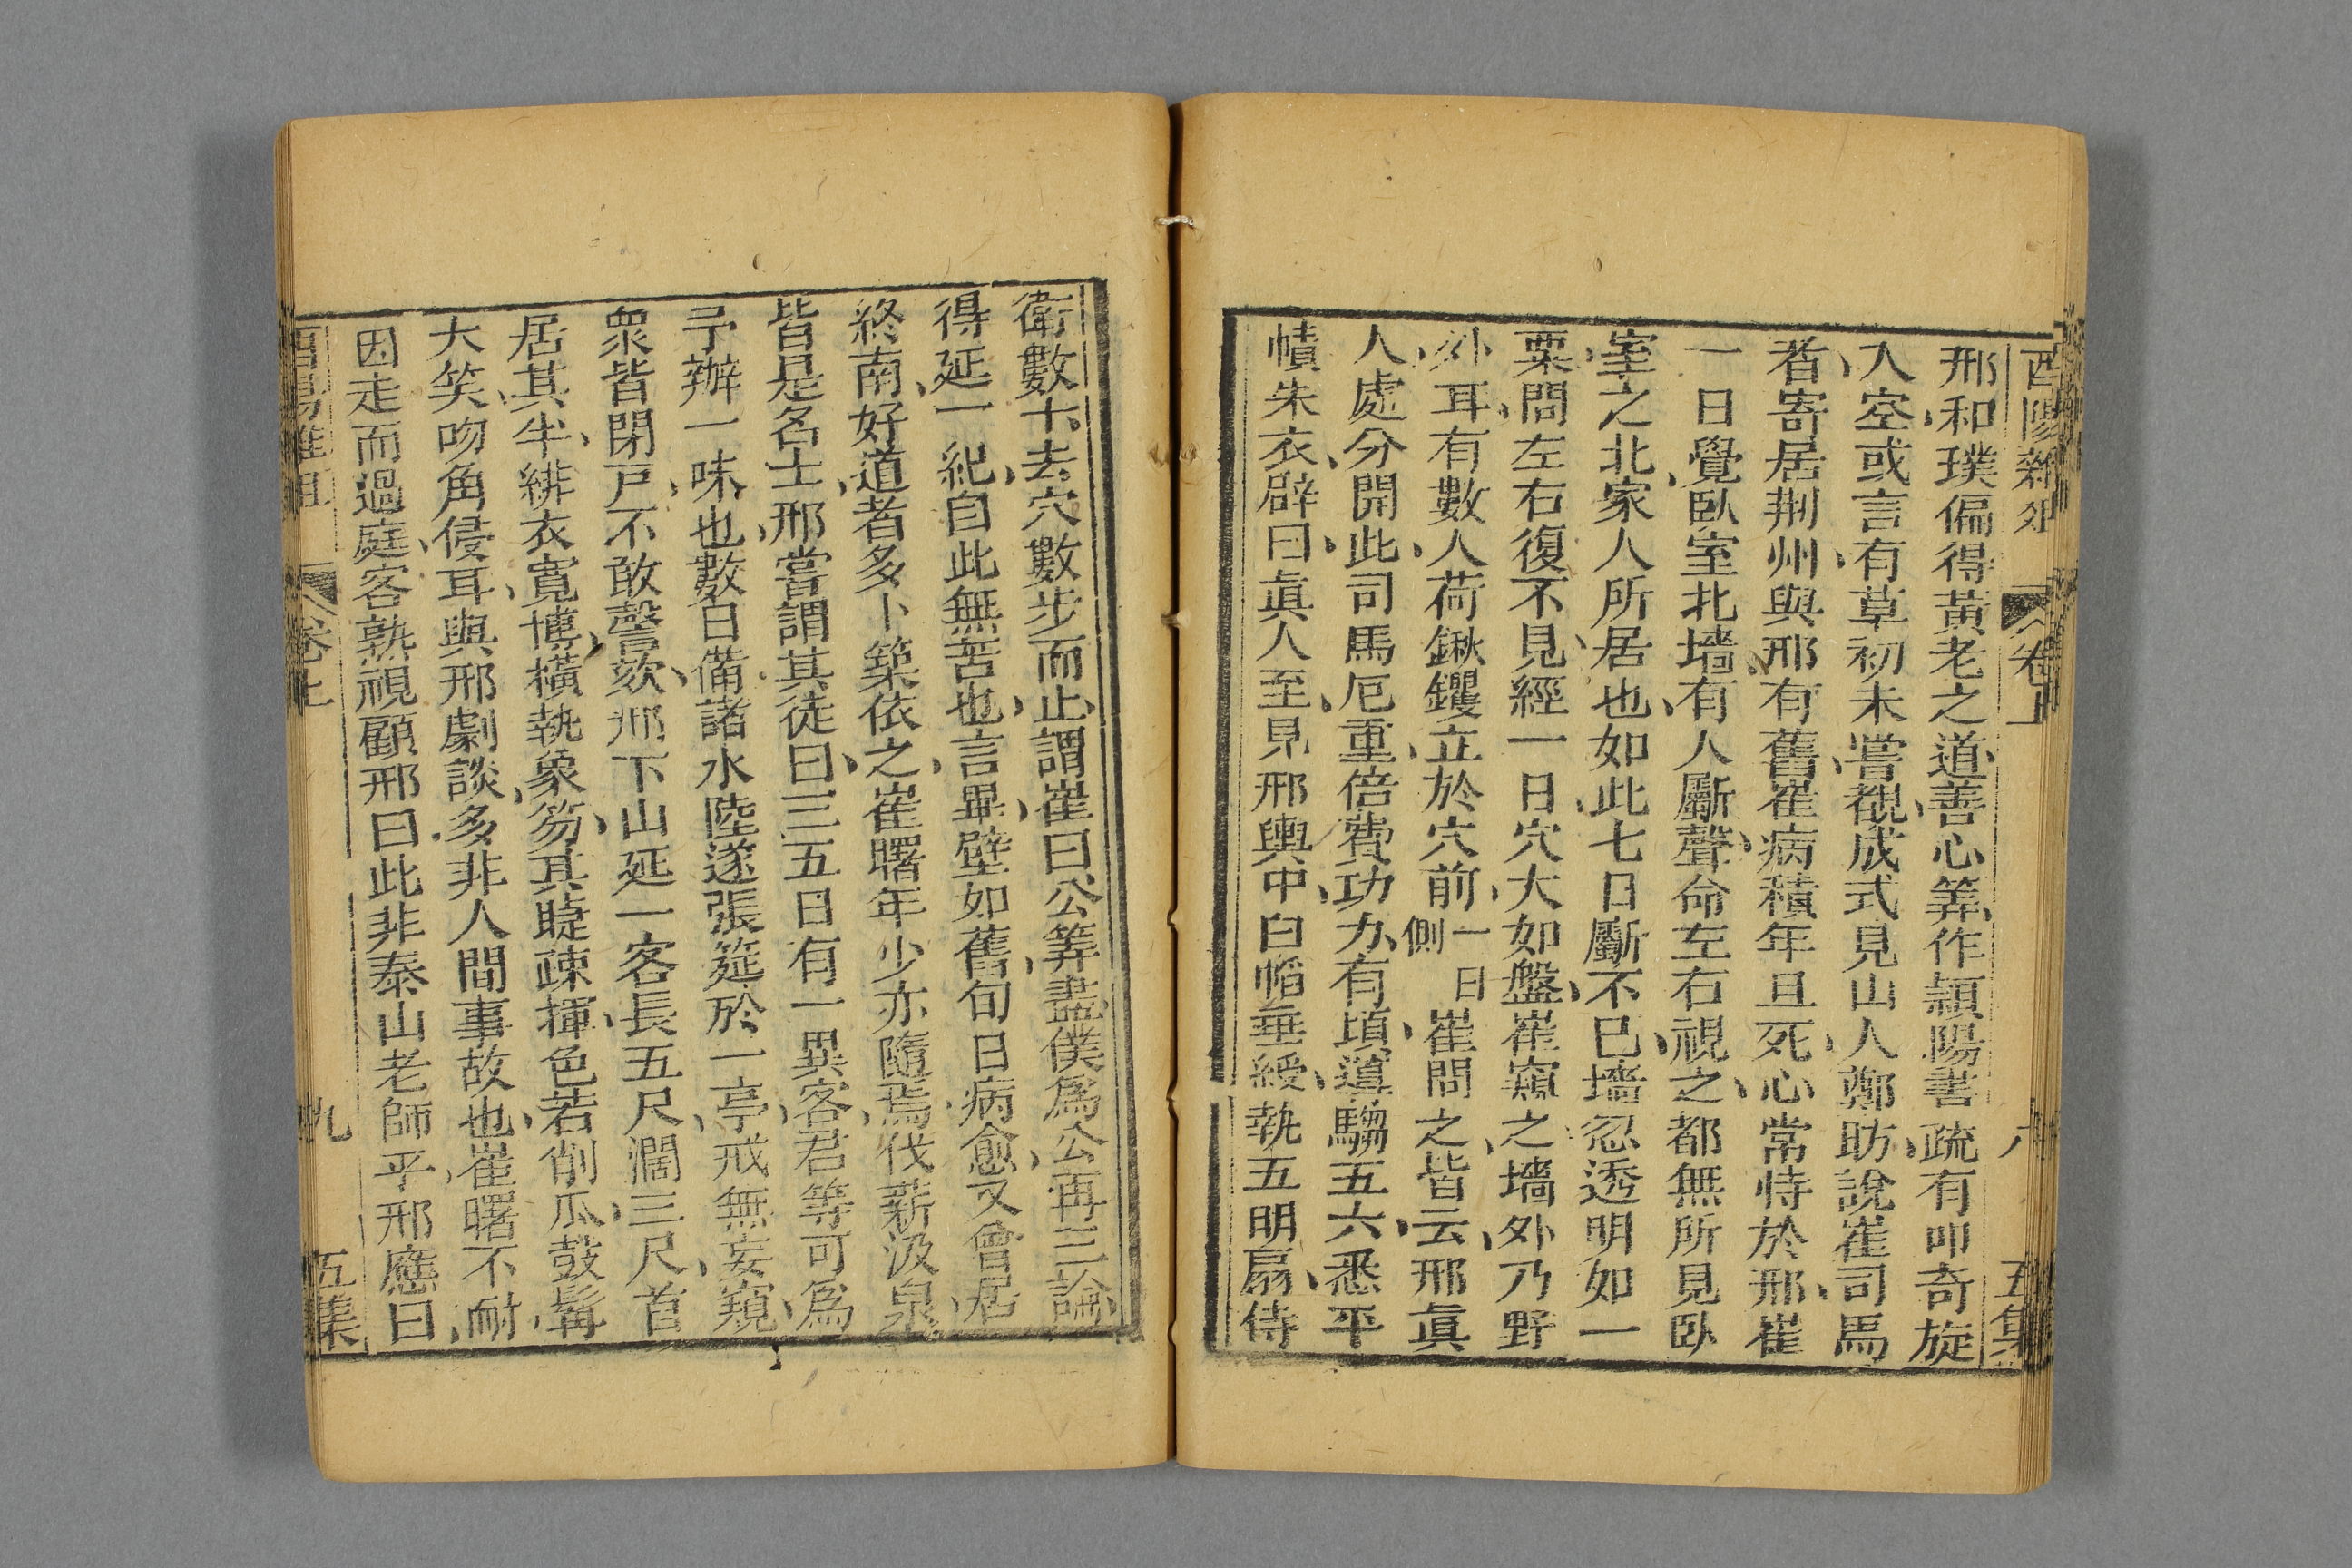 酉陽雜俎 卷上 八 五集
邢和璞偏得黃老之道善心筭作頴陽書疏有叩奇旋
入空或言有草初未嘗覩成式見山人鄭昉說崔司馬
者寄居荆州與邢有舊崔病積年且死心常恃於邢崔
一日覺臥室北墻有人斸聲命左右視之都無所見臥
室之北家人所居也如此七日斸不已墻忽透明如一
粟問左右復不見經一日穴大如盤崔窺之墻外乃野
外耳有數人荷鍬钁立於穴前一日側崔問之皆云邢眞
人處分開此司馬厄重倍費功力有頃導騶五六悉平
幘朱衣辟曰眞人至見邢輿中白幍垂綬執五明扇侍
衛數十去穴數步而止謂崔曰公筭盡僕爲公再三論
得延一紀自此無苦也言畢壁如舊旬日病愈又曾居
終南好道者多卜築依之崔曙年少亦隨焉伐薪汲泉
皆是名士邢嘗謂其徒曰三五日有一異客君等可爲
予辦一味也數日備諸水陸遂張筵於一亭戒無妄窺
衆皆閉戸不敢謦欬邢下山延一客長五尺濶三尺首
居其半緋衣寬博橫執象笏其睫疎揮色若削瓜鼓髯
大笑吻角侵耳與邢劇談多非人間事故也崔曙不耐
因走而過庭客熟視顧邢曰此非泰山老師乎邢應曰
酉陽雜俎 卷上 九 五集